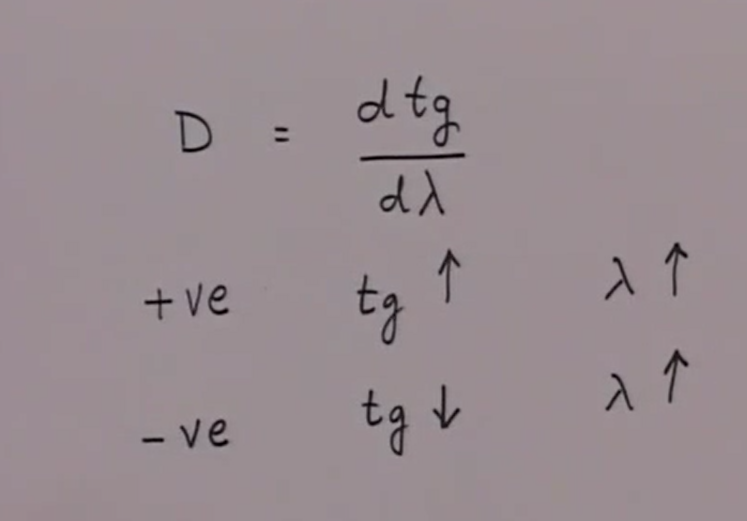 D = dtg
dλ
+ve tg ↑ λ ↑
- ve tg ↓ λ ↑